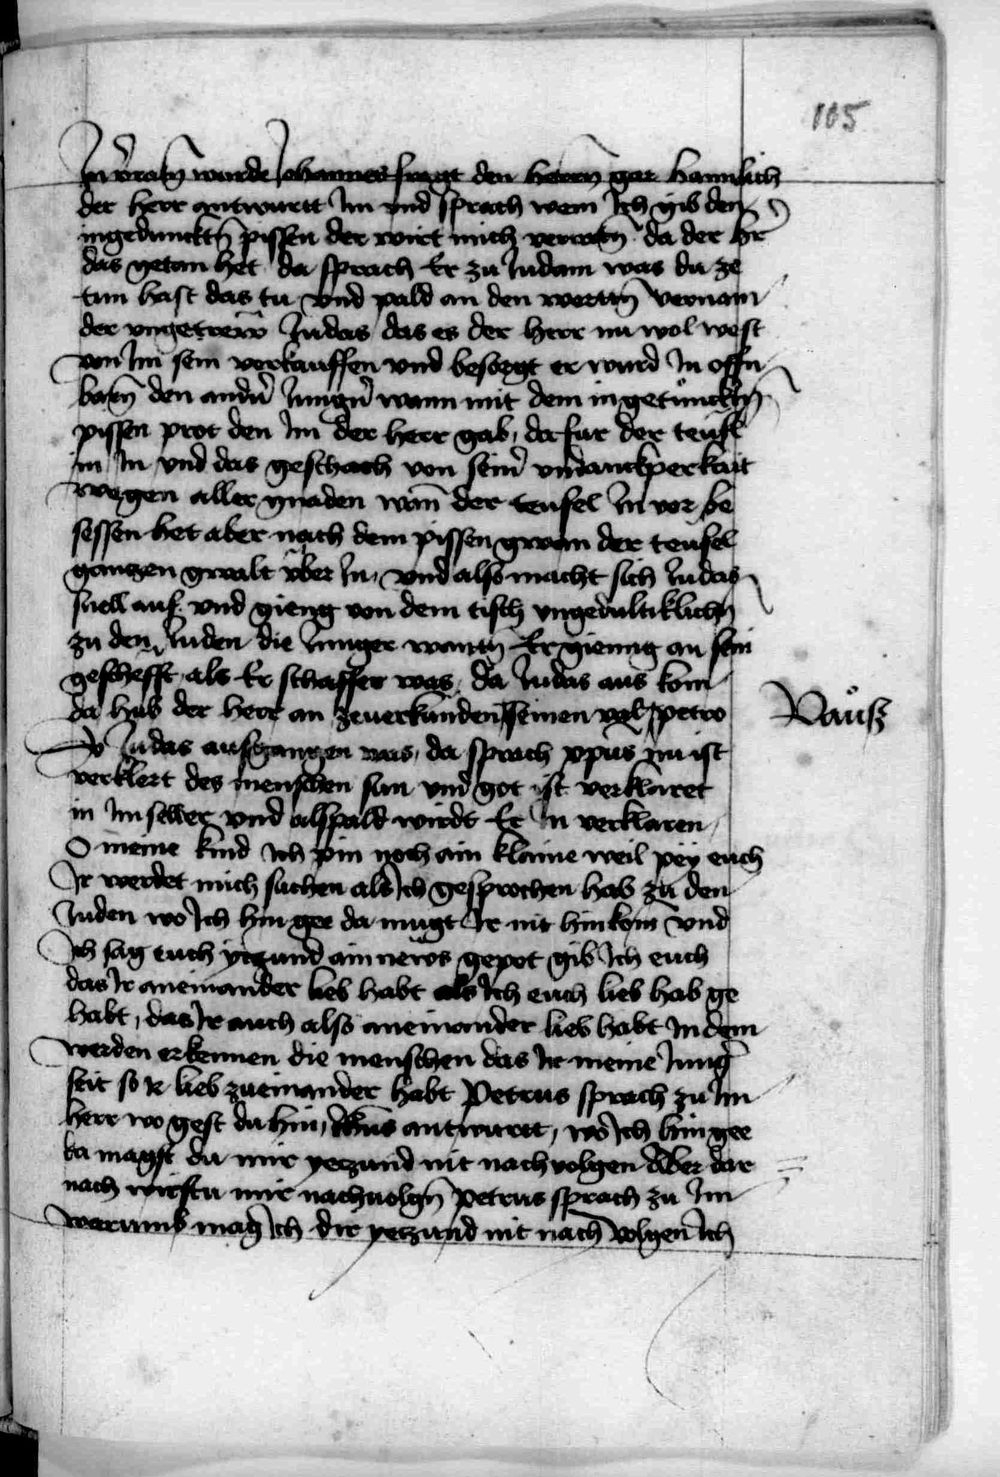 105
In verraten wurde Johannes fragt den herren gar haimlich
der herr antwurtt Im vnd sprach wem Ich gib den
ingedunckten pissen der wirt mich verraten da der hr
das getan het da sprach Er zu Judam was du ze
tun hast das tu vnd pald an den wortten vernam
der vngetrew Judas das es der herr nu wol west
von Im sein verkauffen vnd besorgt er wurd In offn
baren den andern Jungern wann mit dem ingetunckten
pissen prot den Im der herr gab, do fur der teufel
in In vnd das geschach von seiner vndanckperkait
wegen aller gnaden wan der teufel In vor be
sessen het aber nach dem pissen gwan der teufel
gantzen gwalt vber In, vnd also macht sich Judas
snell auf vnd gieng von dem tisch vngedultiklichen
zu den Juden die Junger wanten Er gieng an sein
geschefft als Er schaffer was, da Judas aus kom
da hub der herr an zeuerkunden seinen petro
Pauß
Do Judas ausgangen was, da sprach xpus nu ist
verklert des menschen sun vnd got ist verklaret
in Im selber vnd alspald wirdt Er In verklaren
O meine kind Ich pin noch ain klaine weil pey euch
Ir werdet mich suchen als Ich gesprochen hab zu den
Juden wo Ich hin gee da mugt Ir nit hin kom vnd
Ich sag euch yetzund ain news gepot gib Ich euch
das Ir aneinander lieb habt als Ich euch lieb hab ge
habt, das Ir auch also aneinander lieb habt In dem
werden erkennen die menschen das Ir meine Junger
seit so Ir lieb zueinander habt Petrus sprach zu Im
herr wo gest du hin, antwurtt, wo Ich hin gee
da magst du mir yetzund nit nachvolgen Aber dar
nach wirstu mir nachuolgen petrus sprach zu Im
warumb mag Ich dir yetzund nit nach volgen Ich